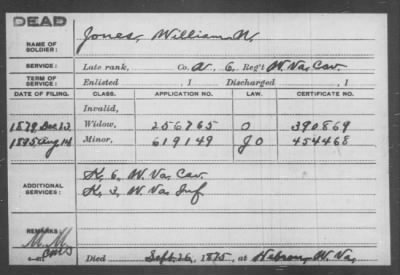 DEAD
NAME OF SOLDIER: Jones, William N.
SERVICE: Late rank, Co. A, 6, Reg't W. Va. Cav.
TERM OF SERVICE: Enlisted , 1 Discharged , 1
DATE OF FILING. CLASS. APPLICATION NO. LAW. CERTIFICATE NO.
Invalid,
1879 Dec 13 Widow, 256765 O 390869
1895 Aug 14 Minor, 619149 JO 454468
ADDITIONAL SERVICES: K, 6, W. Va. Cav.
K, 3, W. Va. Inf
REMARKS:
Died Sept. 26, 1875, at Hebron, W. Va.